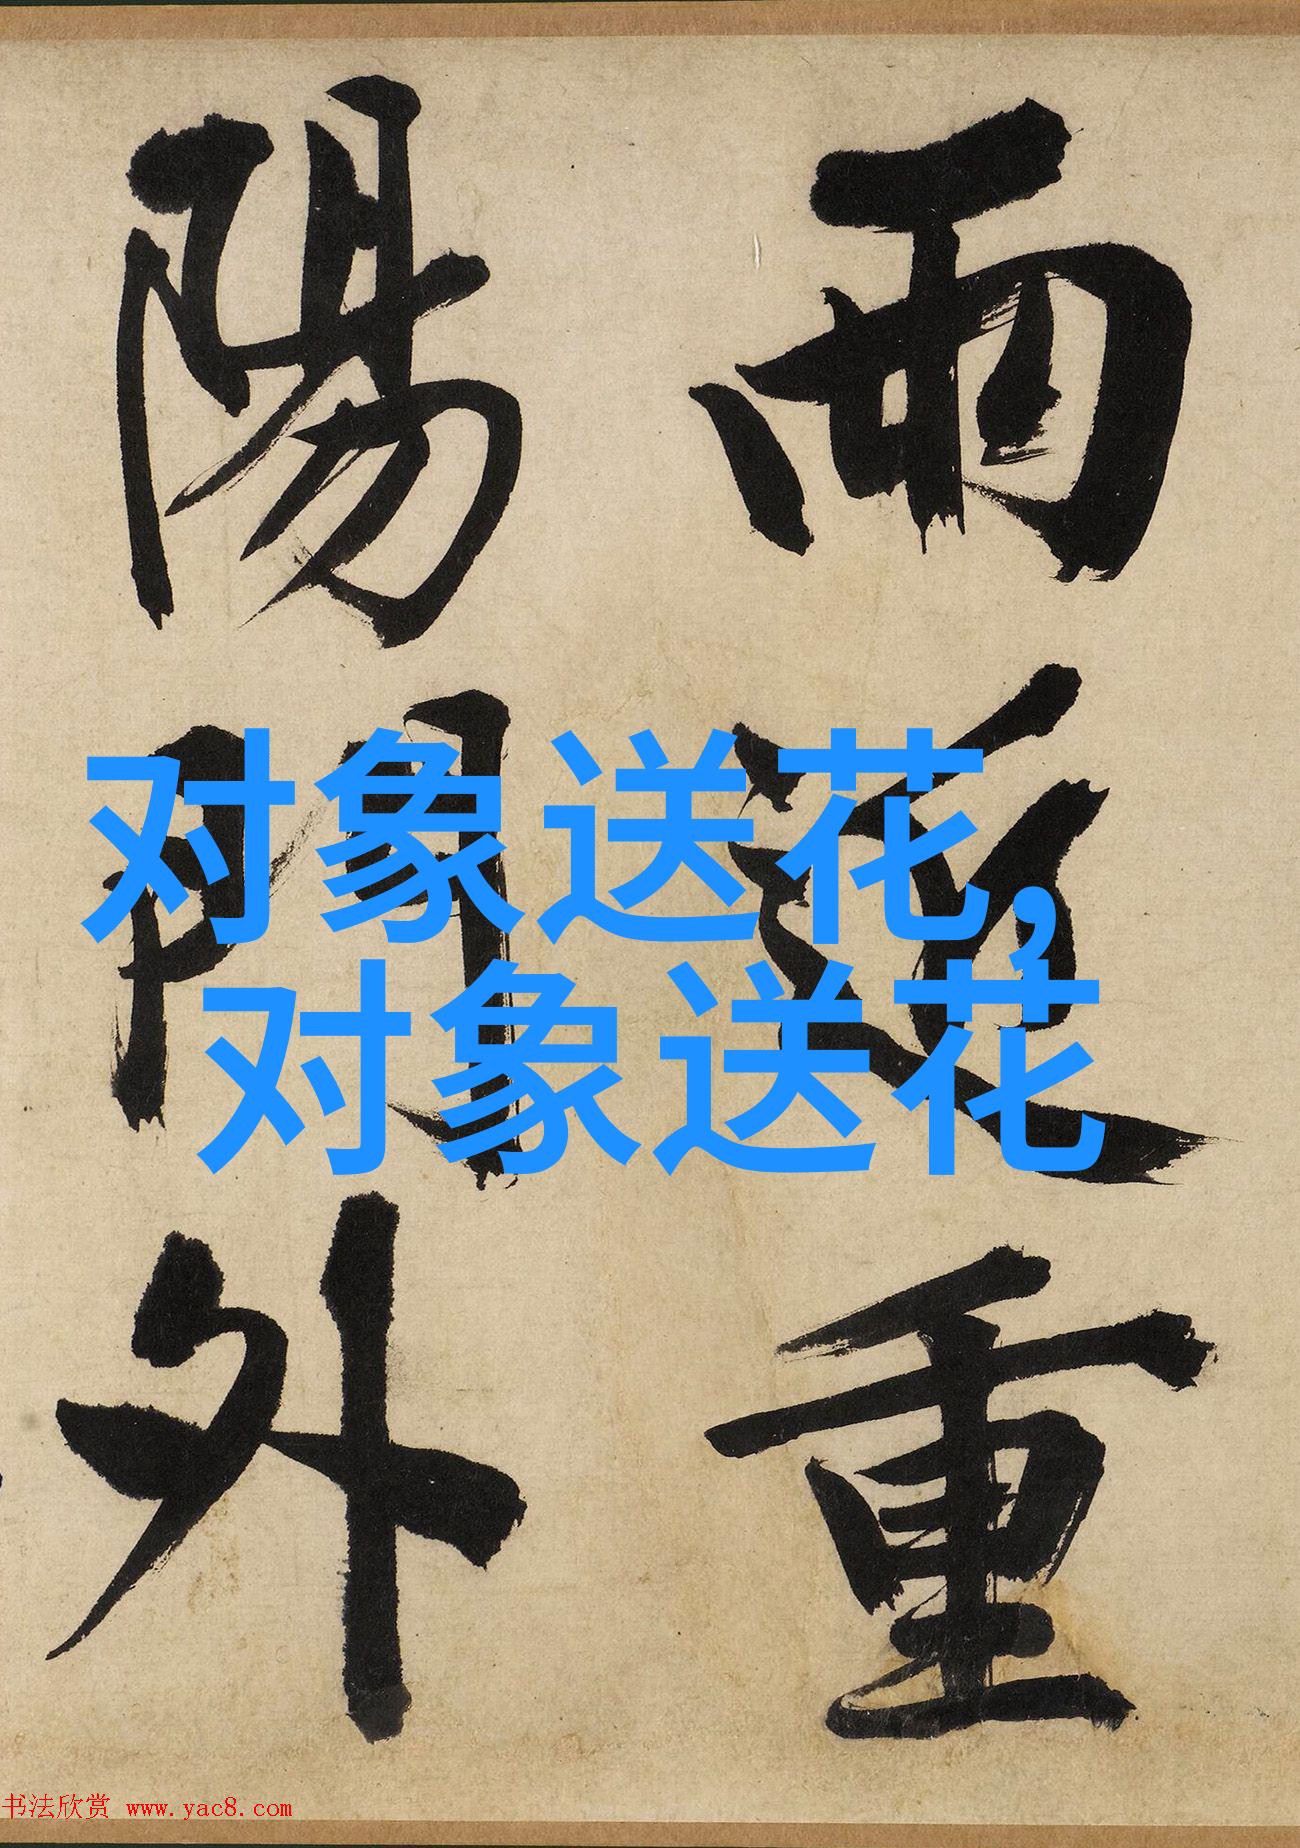 雨
重
陽
門
外
对象送花,
对象送花
书法欣赏 www.yac8.com